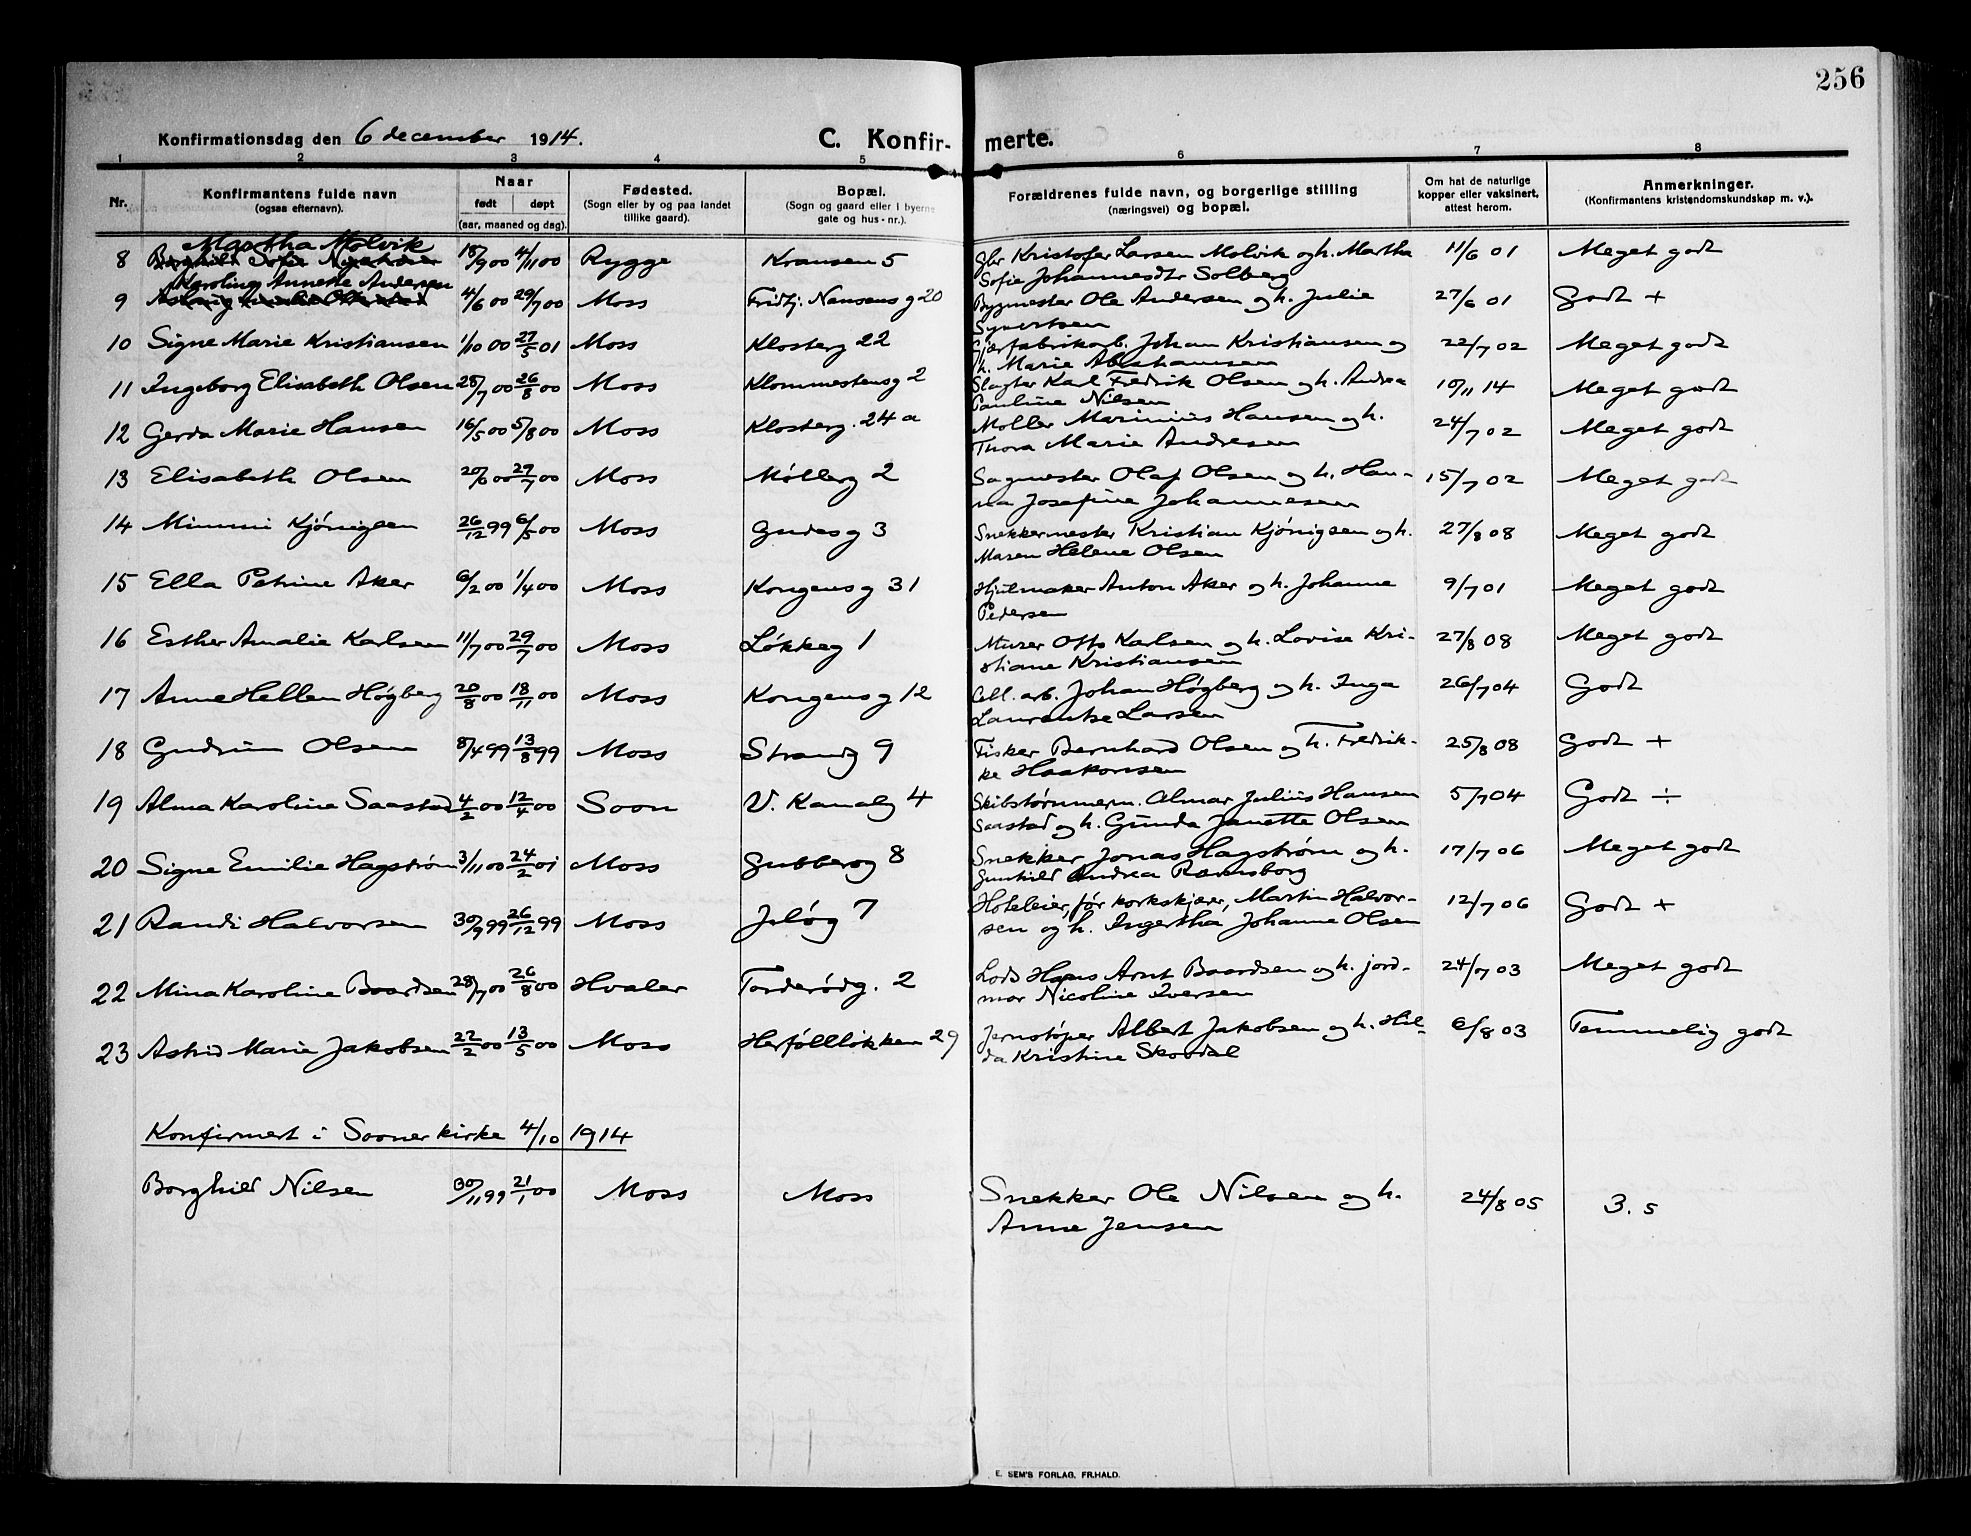 256
Konfirmationsdag den 6 december 1914.
C. Konfir- merte.
1 2 3 4 5 6 7 8
Nr. Konfirmantens fulde navn (ogsaa efternavn). Naar født døpt (aar, maaned og dag). Fødested. (Sogn eller by og paa landet tillike gaard). Bopæl. (Sogn og gaard eller i byerne gate og hus-nr.). Forældrenes fulde navn, og borgerlige stilling (næringsvei) og bopæl. Om hat de naturlige kopper eller vaksinert, attest herom. Anmerkninger. (Konfirmantens kristendomskundskap m. v.).
Martha Molvik
8 18/9 00 4/11 00 Rygge Kransen 5 Gbr Kristofer Larsen Molvik og h. Martha 11/6 01 Meget godt
Sofie Johannesdtr Solberg
Karoline Annette Andersen
9 4/6 00 29/7 00 Moss Fridtj. Nansens g 20 Bygmester Ole Andersen og h. Julie 27/6 01 Godt +
Syvertsen
10 Signe Marie Kristiansen 1/10 00 27/5 01 Moss Klosterg 22 Gjærfabrikarb. Johan Kristiansen og 22/7 02 Meget godt
h. Marie Abrahamsen
11 Ingeborg Elisabeth Olsen 28/7 00 26/8 00 Moss Klommestensg 2 Slagter Karl Fredrik Olsen og h. Andrea 10/11 14 Meget godt
Pauline Nilsen
12 Gerda Marie Hansen 16/5 00 5/8 00 Moss Klosterg. 24 a Møller Marinius Hansen og h. 24/7 02 Meget godt
Thora Marie Andresen
13 Elisabeth Olsen 20/6 00 29/7 00 Moss Møllerg 2 Sagmester Olaf Olsen og h. Han- 15/7 02 Meget godt
na Josefine Johannesen
14 Mimmi Kjónigsen 26/12 99 6/5 00 Moss Gudesg 3 Snekkermester Kristian Kjónigsen og h. 27/8 08 Meget godt
Maren Helene Olsen
15 Ella Petrine Aker 6/2 00 1/4 00 Moss Kongensg 31 Hjulmaker Anton Aker og h. Johanne 9/7 01 Meget godt
Pedersen
16 Esther Amalie Karlsen 11/7 00 29/7 00 Moss Løkkeg 1 Murer Otto Karlsen og h. Lovise Kri- 27/8 08 Meget godt
stiane Kristiansen
17 Anne Hellen Høgberg 20/8 00 18/11 00 Moss Kongensg 12 Cell. arb. Johan Høgberg og h. Inga 26/7 04 Godt
Laurentse Larsen
18 Gudrun Olsen 8/4 99 13/8 99 Moss Strandg 9 Fisker Bernhard Olsen og h. Fredrik- 25/8 08 Godt +
ke Haakonsen
19 Alma Karoline Saastad 4/2 00 12/4 00 Soon V. Kanalg 4 Skibstømmerm. Almar Julius Hansen 5/7 04 Godt ÷
Saastad og h. Gunda Janette Olsen
20 Signe Emilie Hagstrøm 3/11 00 24/2 01 Moss Gubberog 8 Snekker Jonas Hagstrøm og h. 17/7 06 Meget godt
Gunhild Andrea Ramsborg
21 Randi Halvorsen 30/9 99 26/12 99 Moss Jeløg 7 Hoteleier, før korkskjærer, Martin Halvor- 12/7 06 Godt +
sen og h. Ingertha Johanne Olsen
22 Mina Karoline Baardsen 28/7 00 26/8 00 Hvaler Torderødg. 2 Lods Hans Arnt Baardsen og h. jord- 24/7 03 Meget godt
mor Nicoline Iversen
23 Astrid Marie Jakobsen 22/2 00 13/5 00 Moss Herføllløkken 29 Jernstøper Albert Jakobsen og h. Hil- 6/8 03 Temmelig godt
da Kristine Skovdal
Konfirmert i Sooner kirke 4/10 1914
Borghild Nilsen 30/11 99 21/1 00 Moss Moss Snekker Ole Nilsen og h. 24/8 05 3.5
Anne Jensen
E. SEM'S FORLAG, FR.HALD.